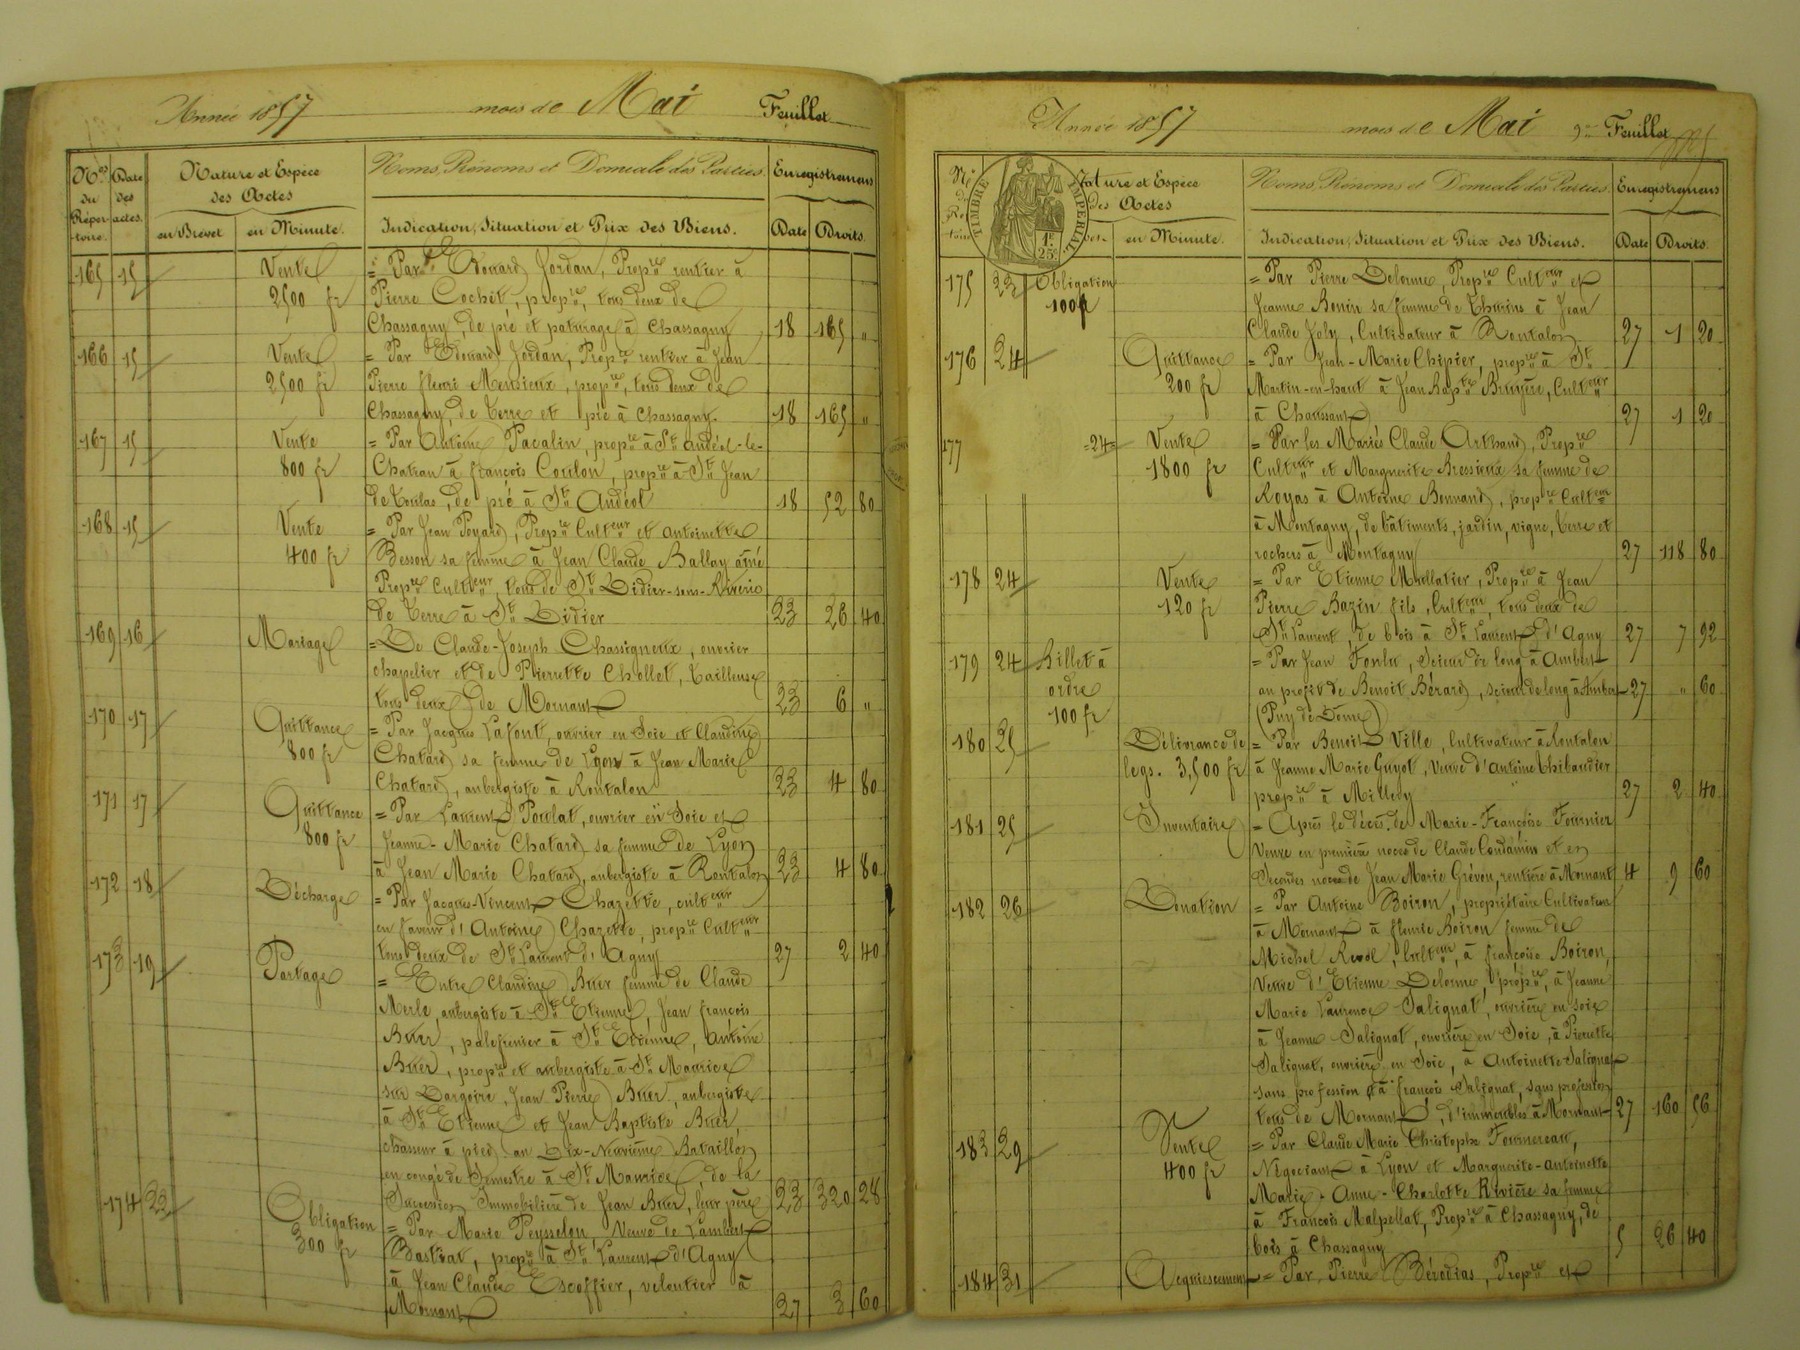 Année 1857 mois de Mai Feuillet
Nos du Répertoire. Date des actes. Nature et Espèce des Actes Noms, Prénoms et Domicile des Parties. Enregistrement
en Brevet en Minute. Indication, Situation et Prix des Biens. Date Droits.
165 15 Vente = Par Edouard Jordan, Propre rentier à
2500 fr Pierre Cochet, propre, tous deux de
Chassagny, de pré et paturage à Chassagny 18 165 "
166 15 Vente = Par Edouard Jordan, Propre rentier à Jean
2500 fr Pierre fleuri Mensieux, propre, tous deux de
Chassagny, de Terre et pré à Chassagny. 18 165 "
167 15 Vente = Par Antoine Pacalin, propre à St andéol-le-
800 fr Chatean à françois Coulon, propre à St Jean
de Toulas, de pré à St Andéol 18 52 80
168 15 Vente = Par Jean Poyard, Propre Culteur et antoinette
400 fr Besson sa femme à Jean Claude Ballay ainé
Propre Culteur, tous de St Didier-sous-Riverie
de Terre à St Didier 23 26 40
169 16 Mariage = De Claude-Joseph Chassigneux, ouvrier
chapelier et de Pierrette Chollet, Tailleuse
tous deux de Mornant 23 6 "
170 17 Quittance = Par Jacques Lafont, ouvrier en Soie et Claudine
800 fr Chatard sa femme de Lyon à Jean Marie
Chatard, aubergiste à Rontalon 23 4 80
171 17 Quittance = Par Laurent Poulat, ouvrier en Soie et
800 fr Jeanne-Marie Chatard sa femme de Lyon
à Jean Marie Chatard, aubergiste à Rontalon 23 4 80
172 18 Décharge = Par Jacques-Vincent Chazette, culteur
en faveur d'Antoine Chazette, propre Culteur
tous deux de St Laurent d'Agny 27 2 40
173 19 Partage = Entre Claudine Brier femme de Claude
Merle, aubergiste à St Etienne, Jean françois
Brier, palefrenier à St Etienne, Antoine
Brier, propre et aubergiste à St Maurice
sur Dargoire, Jean Pierre Brier, aubergiste
à St Etienne et Jean Baptiste Brier,
chasseur à pied au Dix-Neuvième Bataillon
en congé de Semestre à St Maurice, de la
Succession Immobilière de Jean Brier, leur père 23 320 28
174 23 Obligation = Par Marie Peysselon, Veuve de Lambert
300 fr Bastrat, propre à St Laurent d'Agny
à Jean Claude Escoffier, veloutier à
Mornant 27 3 60
Année 1857 mois de Mai 9me Feuillet
TIMBRE IMPERIAL 1F 25c
Nature et Espèce des Actes Noms, Prénoms et Domicile des Parties. Enregistrement
en Minute. Indication, Situation et Prix des Biens. Date Droits.
175 23 Obligation = Par Pierre Delorme, Propre Culteur et
100 fr Jeanne Bonin sa femme de Thurins à Jean
Claude Joly, Cultivateur à Rontalon 27 1 20
176 24 Quittance = Par Jean-Marie Chipier, propre à St
200 fr Martin-en-haut à Jean Bapte Bruyère, Culteur
à Chaussan 27 1 20
177 =24= Vente = Par les Mariés Claude Arthaud, Propre
1800 fr Culteur et Marguerite Bressieux sa femme de
Royas à Antoine Bonnand, propre Culteur
à Montagny, de bâtiments, jardin, vigne, terre et
rochers à Montagny 27 118 80
178 24 Vente = Par Etienne Mollatier, Propre à Jean
120 fr Pierre Bazin fils, Culteur, tous deux de
St Laurent, de bois à St Laurent d'Agny 27 7 92
179 24 Billet à = Par Jean Foulu, Scieur de long à Ambert
ordre au profit de Benoit Bérard, scieur de long à Ambert 27 " 60
100 fr (Puy de Dôme)
180 25 Délivrance de = Par Benoit Ville, Cultivateur à Rontalon
legs. 3,500 fr à Jeanne Marie Guyot, Veuve d'Antoine Thibaudier
propre à Millery 27 2 40
181 25 Inventaire = Après le décès de Marie-Françoise Fournier
Veuve en première noces de Claude Condamin et en
Secondes noces de Jean Marie Grévon, rentière à Mornant 4 9 60
182 26 Donation = Par Antoine Boiron, propriétaire Cultivateur
à Mornant à fleurie Boiron femme de
Michel Revol, Culteur, à françoise Boiron,
Veuve d'Etienne Delorme, propre, à Jeanne
Marie Laurence Salignat, ouvrière en soie
à Jeanne Salignat, ouvrière en Soie, à Pierrette
Salignat, ouvrière en Soie, à Antoinette Salignat
sans profession et à françois Salignat, sans profession
tous de Mornant, d'immeubles à Mornant 27 160 56
183 29 Vente = Par Claude Marie Christophe Fournereau,
400 fr Négociant à Lyon et Marguerite-antoinette
Marie-Anne-Charlotte Rivière sa femme
à François Malpellat, Propre à Chassagny, de
bois à Chassagny 5 26 40
184 31 Acquiescement = Par Pierre Bérodias, Propre et